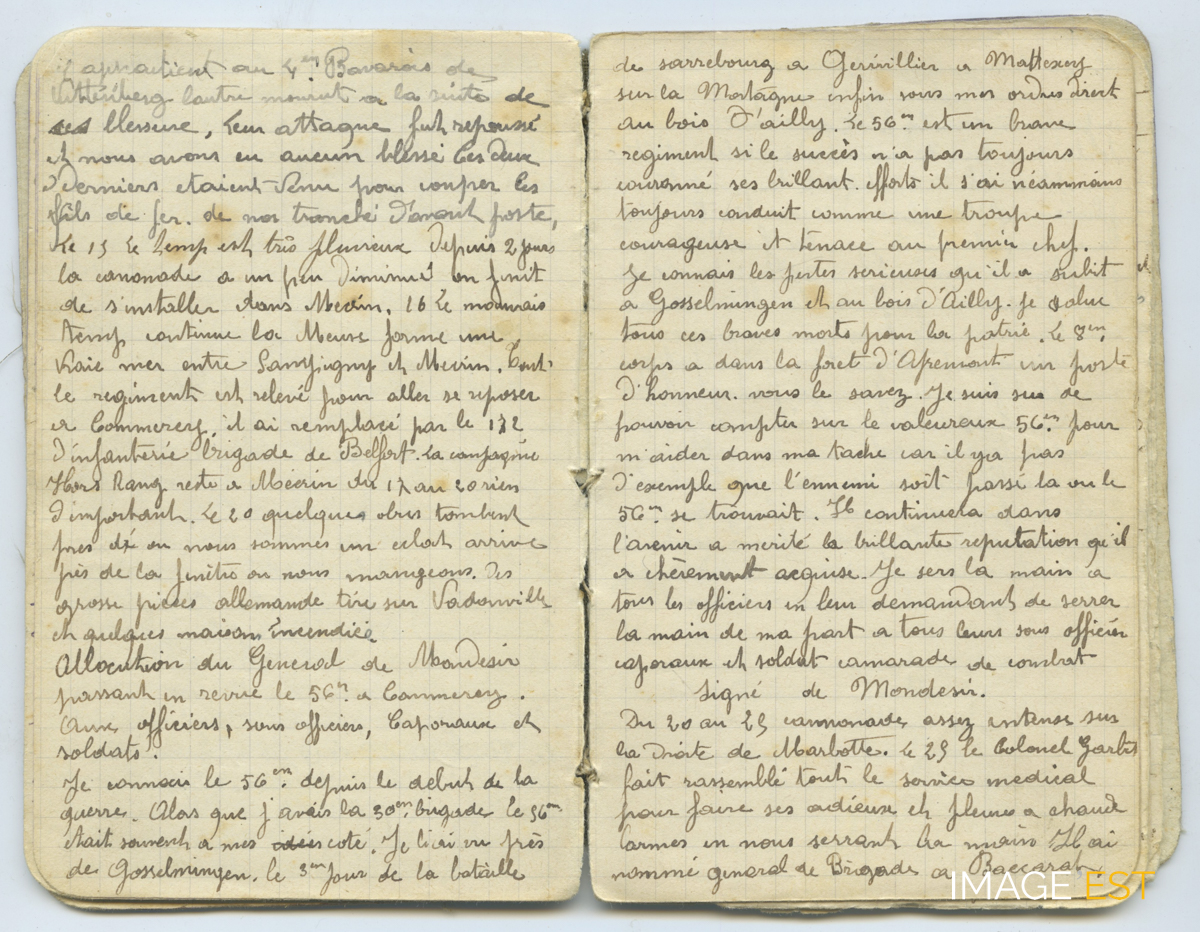 il appartient au 4em Bavarois de
Vittenberg lautre mourut a la suite de
ses blessure, leur attaque fut repoussé
et nous avons eu aucun blessé les deux
derniers etaient venu pour couper les
fils de fer. de nos tranché d'avant poste,
Le 15 le temp est très pluvieux depuis 2 jours
la canonade a un peu diminué on finit
de s'installer dans Mecrin. 16 le mauvais
temp continue la Meuse forme une
vraie mer entre Sampigny et Mecrin. Tout
le regiment est relevé pour aller se reposer
a Commercy, il ai remplacé par le 172
d'infanterie brigade de Belfort. la compagnie
Hors Rang reste a Mécrin du 17 au 20 rien
d'important. Le 20 quelques obus tombent
près de ou nous sommes un eclat arrive
près de la finètre ou nous mangeons. Des
grosse pièces allemande tire sur Vadonville
et quelques maison incendiée
Allocution du General de Mondesir
passant en revue le 56em a Commercy.
Aux officiers, sous officiers, Caporaux et
soldats.
Je connais le 56em depuis le debut de la
guerre. Alors que j'avais la 30em brigade le 56em
était souvent a mes coté. Je l'ai vu près
de Gosselmingen. le 3em jour de la bataille
de sarrebourg a Gerivillier a Mattexey
sur la Mortagne enfin sous mes ordres direct
au bois d'ailly. Le 56em est un brave
regiment si le succès n'a pas toujours
couronné ses brillant. efforts il s'ai néammoins
toujours conduit comme une troupe
courageuse et tenace au premier chef.
Je connais les pertes serieuses qu'il a subit
a Gosselmingen et au bois d'Ailly. Je salue
tous ces braves morts pour la patrie. Le 8em
corps a dans la foret d'Apremont un poste
d'honneur. vous le savez. Je suis sur de
pouvoir compter sur le valeureux 56em pour
m'aider dans ma tache car il y a pas
d'exemple que l'ennemi soit passé la ou le
56em se trouvait. Il continuera dans
l'avenir a merité la brillante reputation qu'il
a chèrement acquise. Je sers la main a
tous les officiers en leur demandant de serrer
la main de ma part a tous leurs sous officier
caporaux et soldat camarade de combat
Signé de Mondesir.
Du 20 au 25 cannonade assez intense sur
la droite de Marbotte. Le 25 le Colonel
fait rassemblé tout le service medical
pour faire ses adieux et pleure a chaude
larmes en nous serrant la main Il ai
nommé general de Brigade a Baccarat.
IMAGE EST